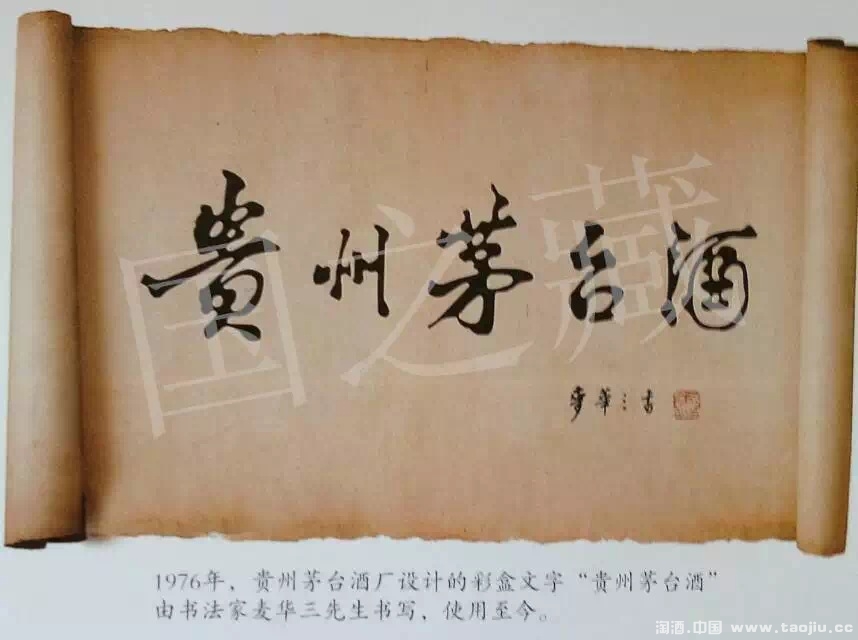 貴州茅台酒
国之藏
麥華三書
1976年，贵州茅台酒厂设计的彩盒文字“贵州茅台酒”
由书法家麦华三先生书写，使用至今。
淘酒.中国 www.taojiu.cc